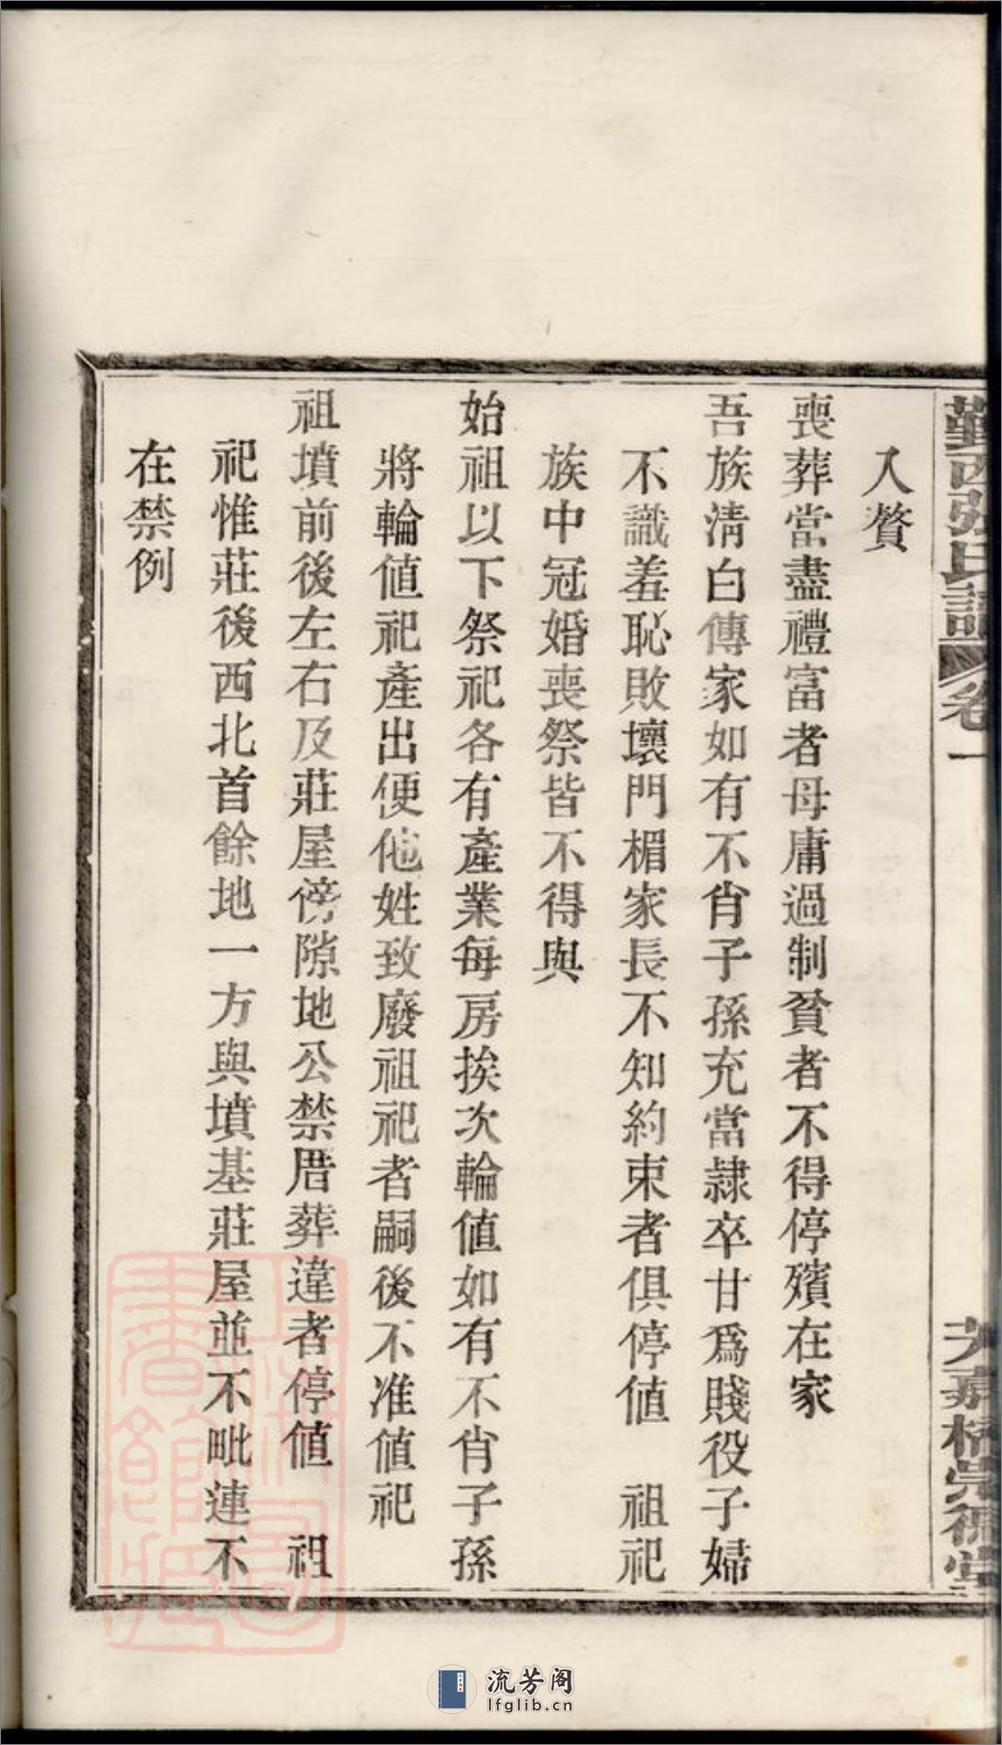 鄞西張氏譜 卷一
嘉 崇 堂
入贅
喪葬當盡禮富者毋庸過制貧者不得停殯在家
吾族淸白傳家如有不肖子孫充當隷卒甘爲賤役子婦
不識羞恥敗壞門楣家長不知約束者俱停値 祖祀
族中冠婚喪祭皆不得與
始祖以下祭祀各有產業每房挨次輪値如有不肖子孫
將輪値祀產出便他姓致廢祖祀者嗣後不准値祀
祖墳前後左右及莊屋傍隙地公禁厝葬違者停値 祖
祀惟莊後西北首餘地一方與墳基莊屋並不毗連不
在禁例
流芳阁
lfglib.cn